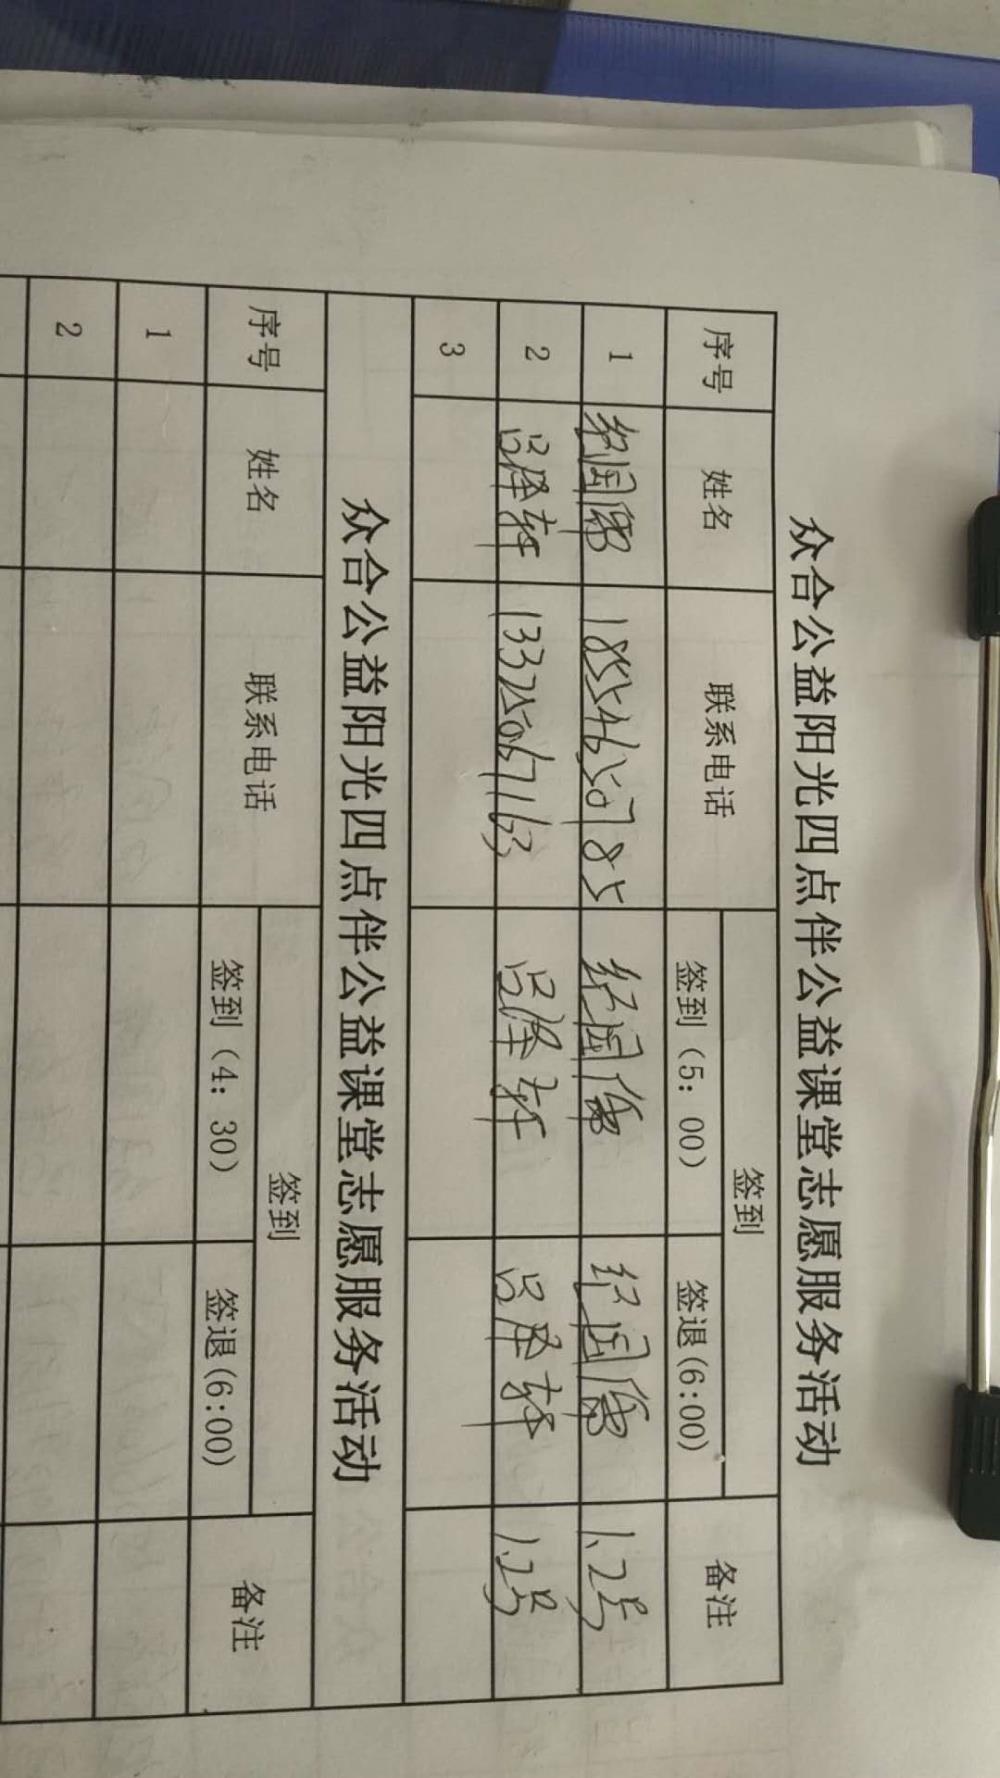 众合公益阳光四点伴公益课堂志愿服务活动
序号 姓名 联系电话 签到 备注
签到（5：00） 签退(6:00)
1 纪国儒 18554650785 纪国儒 纪国儒 1.2号
2 吕泽轩 13325067163 吕泽轩 吕泽轩 1.2号
3
众合公益阳光四点伴公益课堂志愿服务活动
序号 姓名 联系电话 签到 备注
签到（4：30） 签退(6:00)
1
2